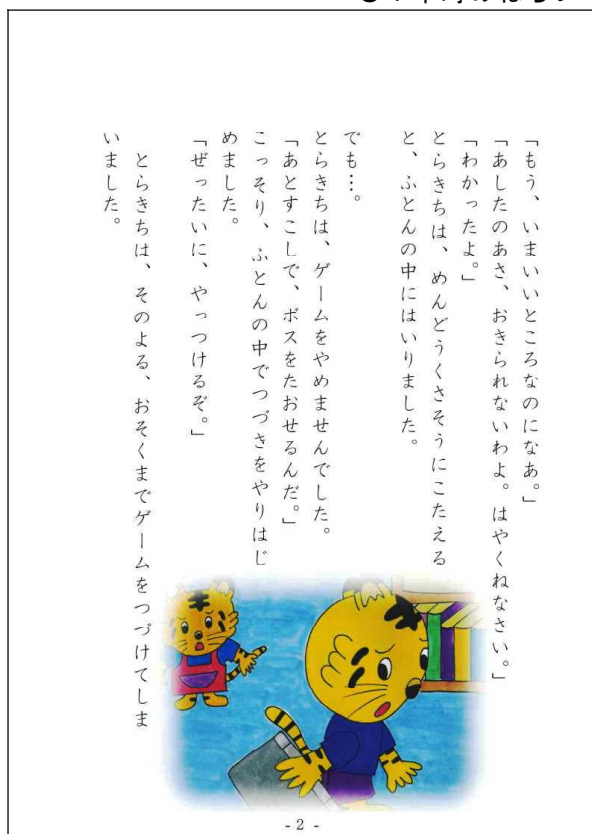 「もう、いまいいところなのになあ。」
「あしたのあさ、おきられないわよ。はやくねなさい。」
「わかったよ。」
とらきちは、めんどうくさそうにこたえる
と、ふとんの中にはいりました。
でも…。
とらきちは、ゲームをやめませんでした。
「あとすこしで、ボスをたおせるんだ。」
こっそり、ふとんの中でつづきをやりはじ
めました。
「ぜったいに、やっつけるぞ。」
とらきちは、そのよる、おそくまでゲームをつづけてしま
いました。
- 2 -